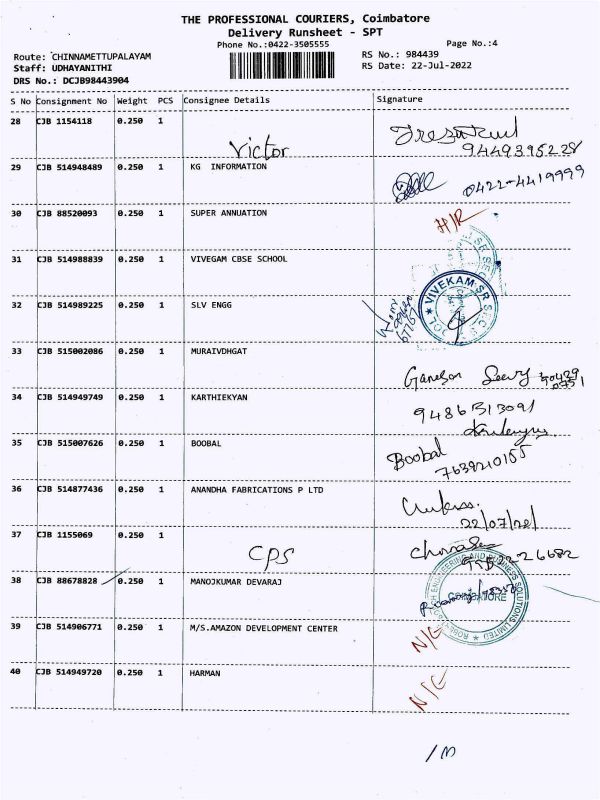 THE PROFESSIONAL COURIERS, Coimbatore
Delivery Runsheet - SPT
Phone No.:0422-3505555
Page No.:4
Route: CHINNAMETTUPALAYAM
RS No.: 984439
Staff: UDHAYANITHI
RS Date: 22-Jul-2022
DRS No.: DCJB98443904
S No Consignment No Weight PCS Consignee Details Signature
28 CJB 1154118 0.250 1
Victor 9449395228
29 CJB 514948489 0.250 1 KG INFORMATION
0422-4419999
30 CJB 88520093 0.250 1 SUPER ANNUATION
H/R
31 CJB 514988839 0.250 1 VIVEGAM CBSE SCHOOL
VIVEKAM SR SEC
32 CJB 514989225 0.250 1 SLV ENGG
33 CJB 515002086 0.250 1 MURAIVDHGAT
Ganeson
34 CJB 514949749 0.250 1 KARTHIEKYAN
9486313091
35 CJB 515007626 0.250 1 BOOBAL
Boobal
7639210155
36 CJB 514877436 0.250 1 ANANDHA FABRICATIONS P LTD
22/07/22
37 CJB 1155069 0.250 1
CPS
38 CJB 88678828 0.250 1 MANOJKUMAR DEVARAJ
ENGINEERING AND BUSINESS SOLUTIONS LIMITED
39 CJB 514906771 0.250 1 M/S.AMAZON DEVELOPMENT CENTER
N/G
40 CJB 514949720 0.250 1 HARMAN
N/G